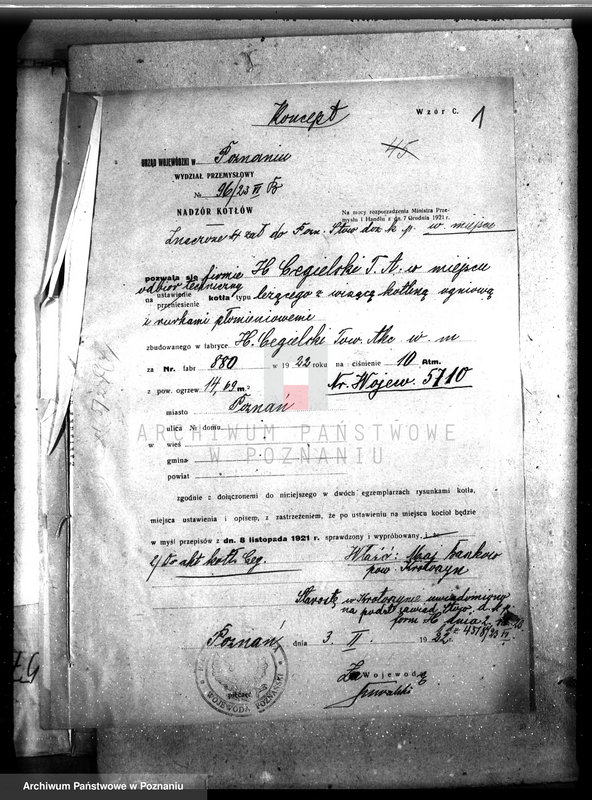 Koncept
Wzór C.
1
45
URZĄD WOJEWÓDZKI w Poznaniu
WYDZIAŁ PRZEMYSŁOWY
№ 96/23 VI B
NADZÓR KOTŁÓW
Na mocy rozporządzenia Ministra Prze-
mysłu i Handlu z dn. 7 Grudnia 1921 r.
zał do Pozn. Stow doz. k. p. w miejscu
pozwala się firmie H Cegielski T. A. w miejscu
odbiór techniczny
na ustawienie
przeniesienie kotła typu leżącego z wiszącą kotliną ogniową
z rurkami płomieniowemi
zbudowanego w fabryce H. Cegielski Tow. Akc w. m
za Nr. fabr 880 w 1922 roku na ciśnienie 10 Atm.
z pow. ogrzew 14,69 m.² Nr. Wojew. 5110
miasto Poznań
ulica № domu
w wieś
gmina
powiat
ARCHIWUM PAŃSTWOWE
W POZNANIU
zgodnie z dołączonemi do niniejszego w dwóch egzemplarzach rysunkami kotła,
miejsca ustawienia i opisem, z zastrzeżeniem, że po ustawieniu na miejscu kocioł będzie
w myśl przepisów z dn. 8 listopada 1921 r. sprawdzony i wypróbowany
2/ Do akt kotł. Ceg.
Właśc: Maj
pow. Krotoszyn
Starostę w Krotoszynie uwiadomiono
na podst zawiad. Stow. d. k. p.
form H dnia 2
Poznań, dnia 3. II. 1922
Za Wojewodę
WOJEWODA POZNAŃSKI
pieczęć
Archiwum Państwowe w Poznaniu